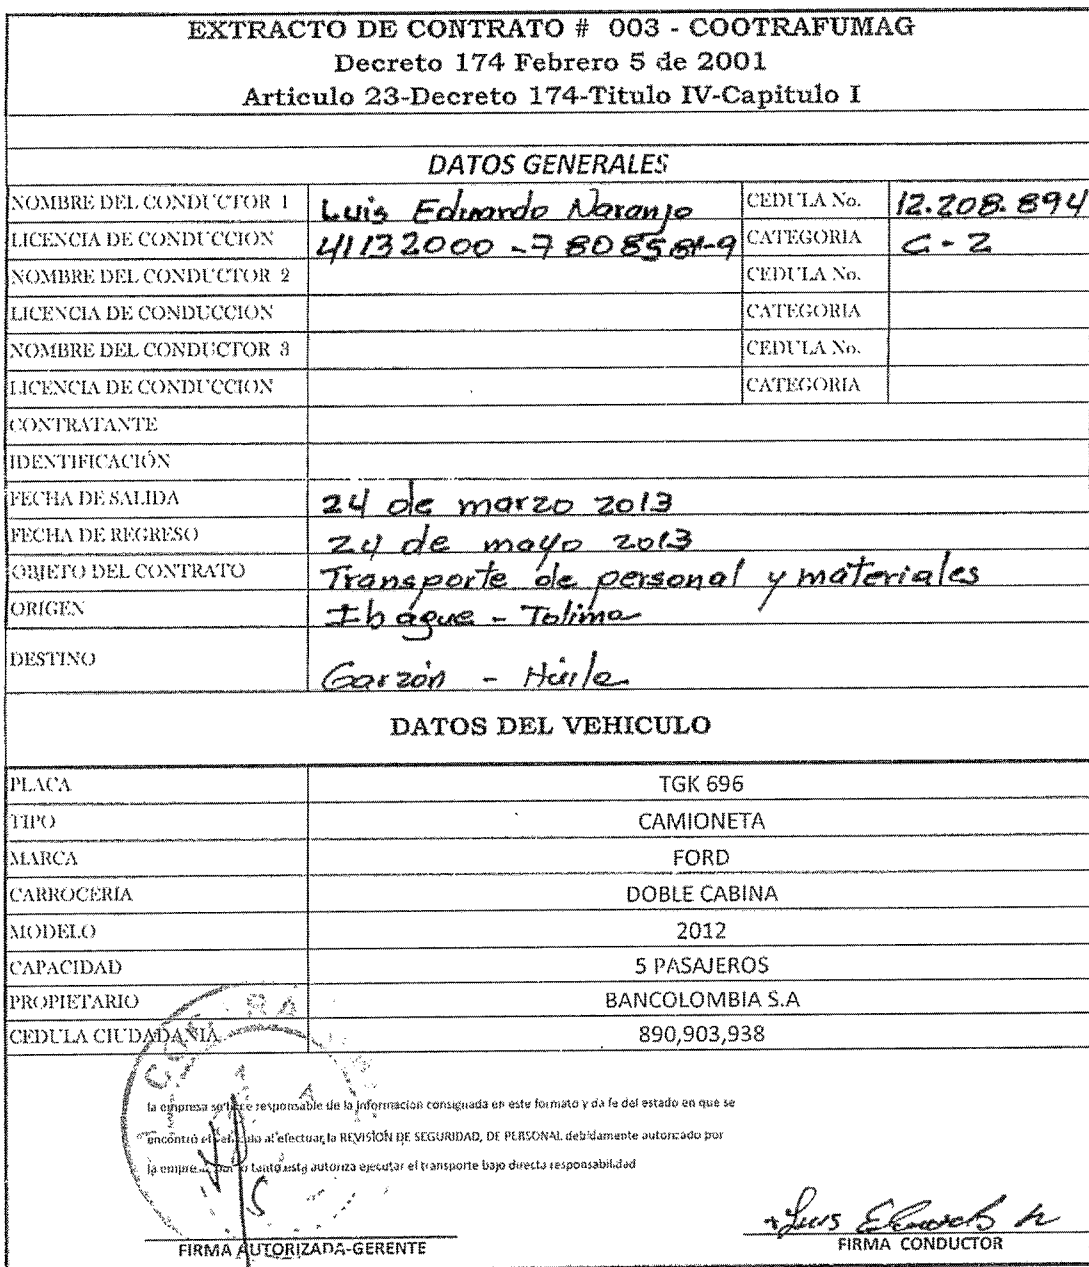 EXTRACTO DE CONTRATO # 003 - COOTRAFUMAG
Decreto 174 Febrero 5 de 2001
Articulo 23-Decreto 174-Titulo IV-Capitulo I
DATOS GENERALES
NOMBRE DEL CONDUCTOR 1 Luis Eduardo Naranjo CEDULA No. 12.208.894
LICENCIA DE CONDUCCION 41132000-7808581-9 CATEGORIA C-2
NOMBRE DEL CONDUCTOR 2 CEDULA No.
LICENCIA DE CONDUCCION CATEGORIA
NOMBRE DEL CONDUCTOR 3 CEDULA No.
LICENCIA DE CONDUCCION CATEGORIA
CONTRATANTE
IDENTIFICACIÓN
FECHA DE SALIDA 24 de marzo 2013
FECHA DE REGRESO 24 de mayo 2013
OBJETO DEL CONTRATO Transporte de personal y materiales
ORIGEN Ibágue - Tolima
DESTINO Garzón - Huila
DATOS DEL VEHICULO
PLACA TGK 696
TIPO CAMIONETA
MARCA FORD
CARROCERIA DOBLE CABINA
MODELO 2012
CAPACIDAD 5 PASAJEROS
PROPIETARIO BANCOLOMBIA S.A
CEDULA CIUDADANIA 890,903,938
la empresa se hace responsable de la informacion consignada en este formato y da fe del estado en que se
encontró el vehiculo al efectuar la REVISIÓN DE SEGURIDAD, DE PERSONAL debidamente autorizado por
la empresa por lo tanto esta autoriza ejecutar el transporte bajo directa responsabilidad
Luis Eduardo N
FIRMA AUTORIZADA-GERENTE FIRMA CONDUCTOR